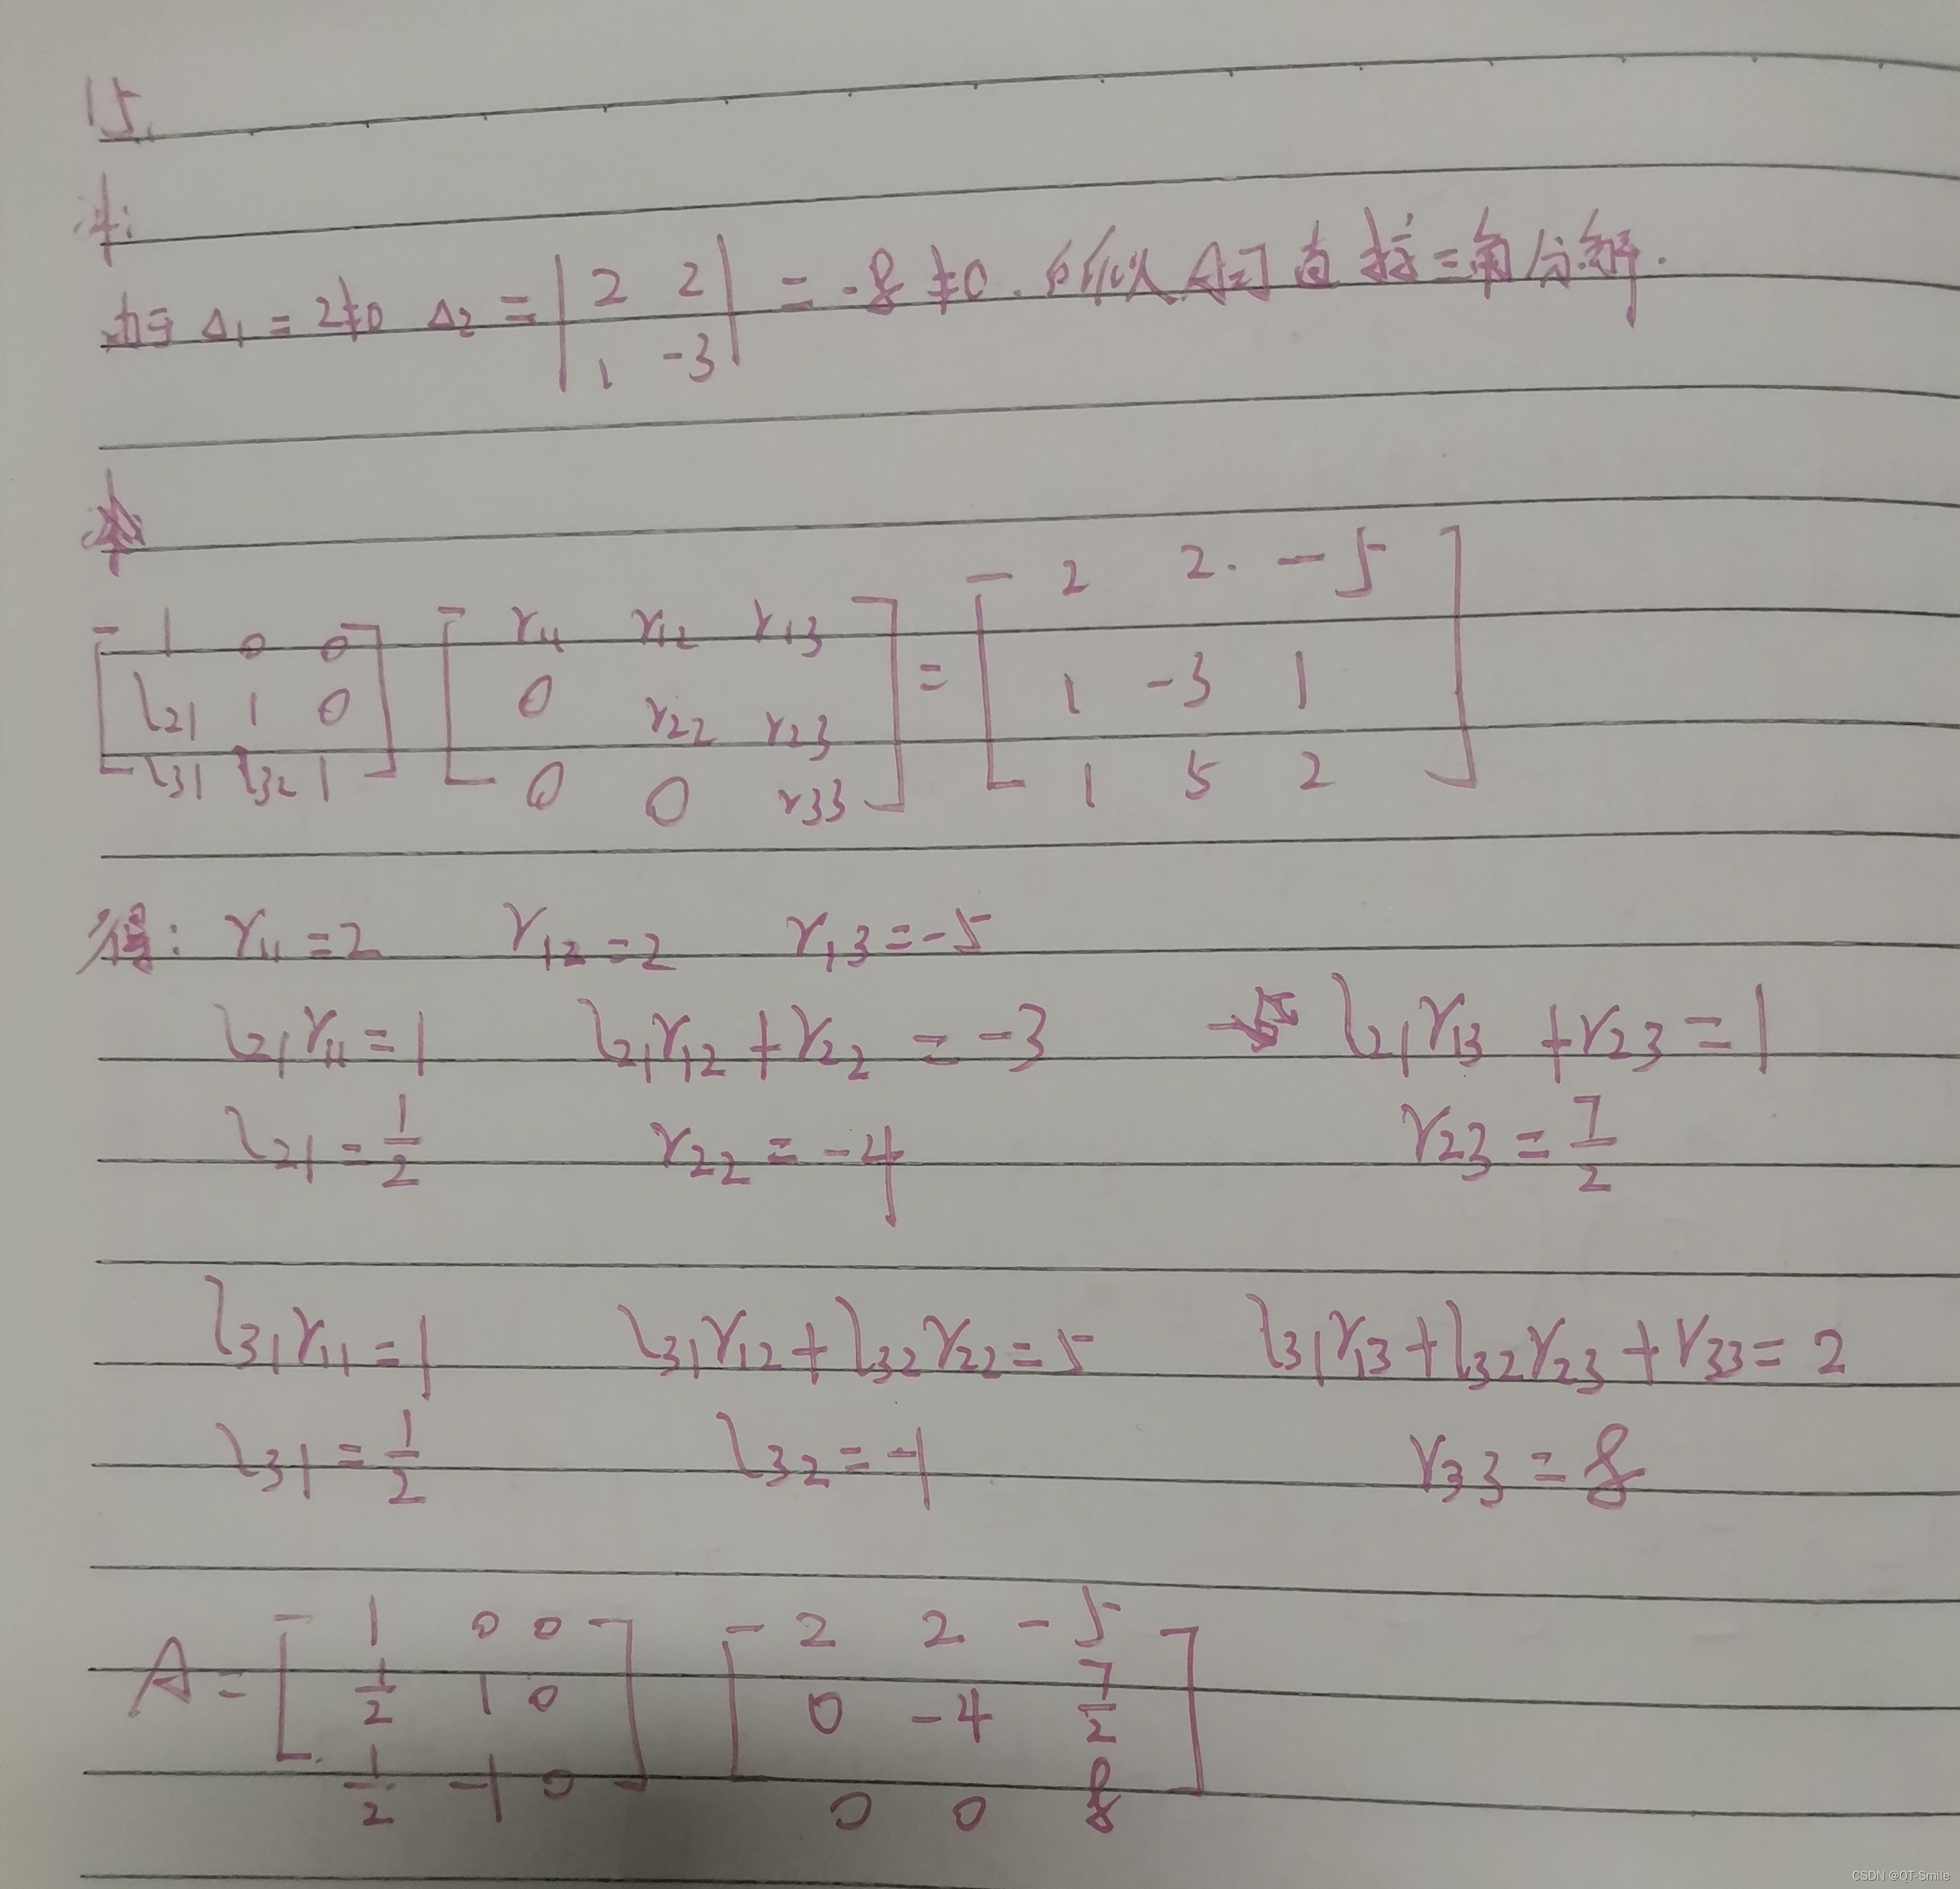 15.
解:
由于 Δ1 = 2≠0 Δ2 = | 2 2 | = -8 ≠0. 所以 A可直接三角分解.
| 1 -3 |
[ 1 0 0 ] [ r11 r12 r13 ] = [ 2 2. -5 ]
[ l21 1 0 ] [ 0 r22 r23 ] [ 1 -3 1 ]
[ l31 l32 1 ] [ 0 0 r33 ] [ 1 5 2 ]
得: r11 = 2 r12 = 2 r13 = -5
l21 r11 = 1 l21 r12 + r22 = -3 l21 r13 + r23 = 1
l21 = 1/2 r22 = -4 r23 = 7/2
l31 r11 = 1 l31 r12 + l32 r22 = 5 l31 r13 + l32 r23 + r33 = 2
l31 = 1/2 l32 = -1 r33 = 8
A = [ 1 0 0 ] [ 2 2 -5 ]
[ 1/2 1 0 ] [ 0 -4 7/2 ]
[ 1/2 -1 0 ] [ 0 0 8 ]
CSDN @QT-Smile